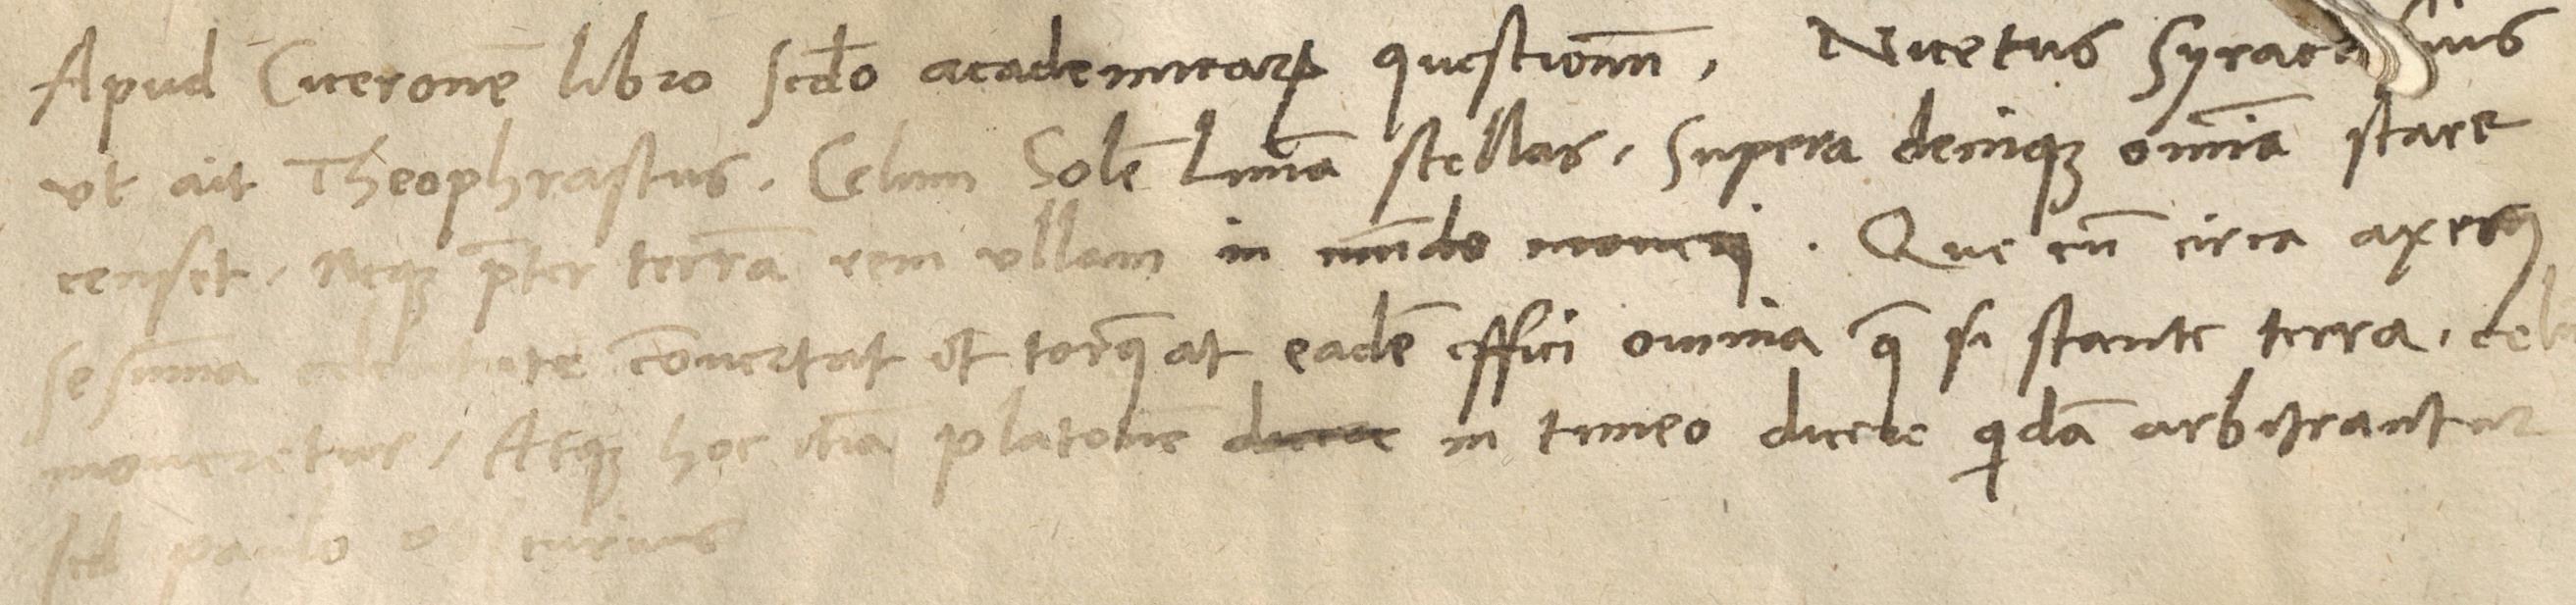 Apud Ciceronē libro scdo academicaꝝ questionū, Nicetus Syracusius
vt ait Theophrastus. Celum Solē Lunā stellas, supera deniqꝫ omīa stare
censet, neqꝫ p̄ter terrā rem vllam in mūdo moueri. Que cū circa axem
se sūma celeritate cōuertat et torq̄at eadē effici omnia q̄ si stante terra, celū
moueretur, Atqꝫ hoc etiā platonē in timeo dicere qdā arbitrantur
sed paulo obscurius